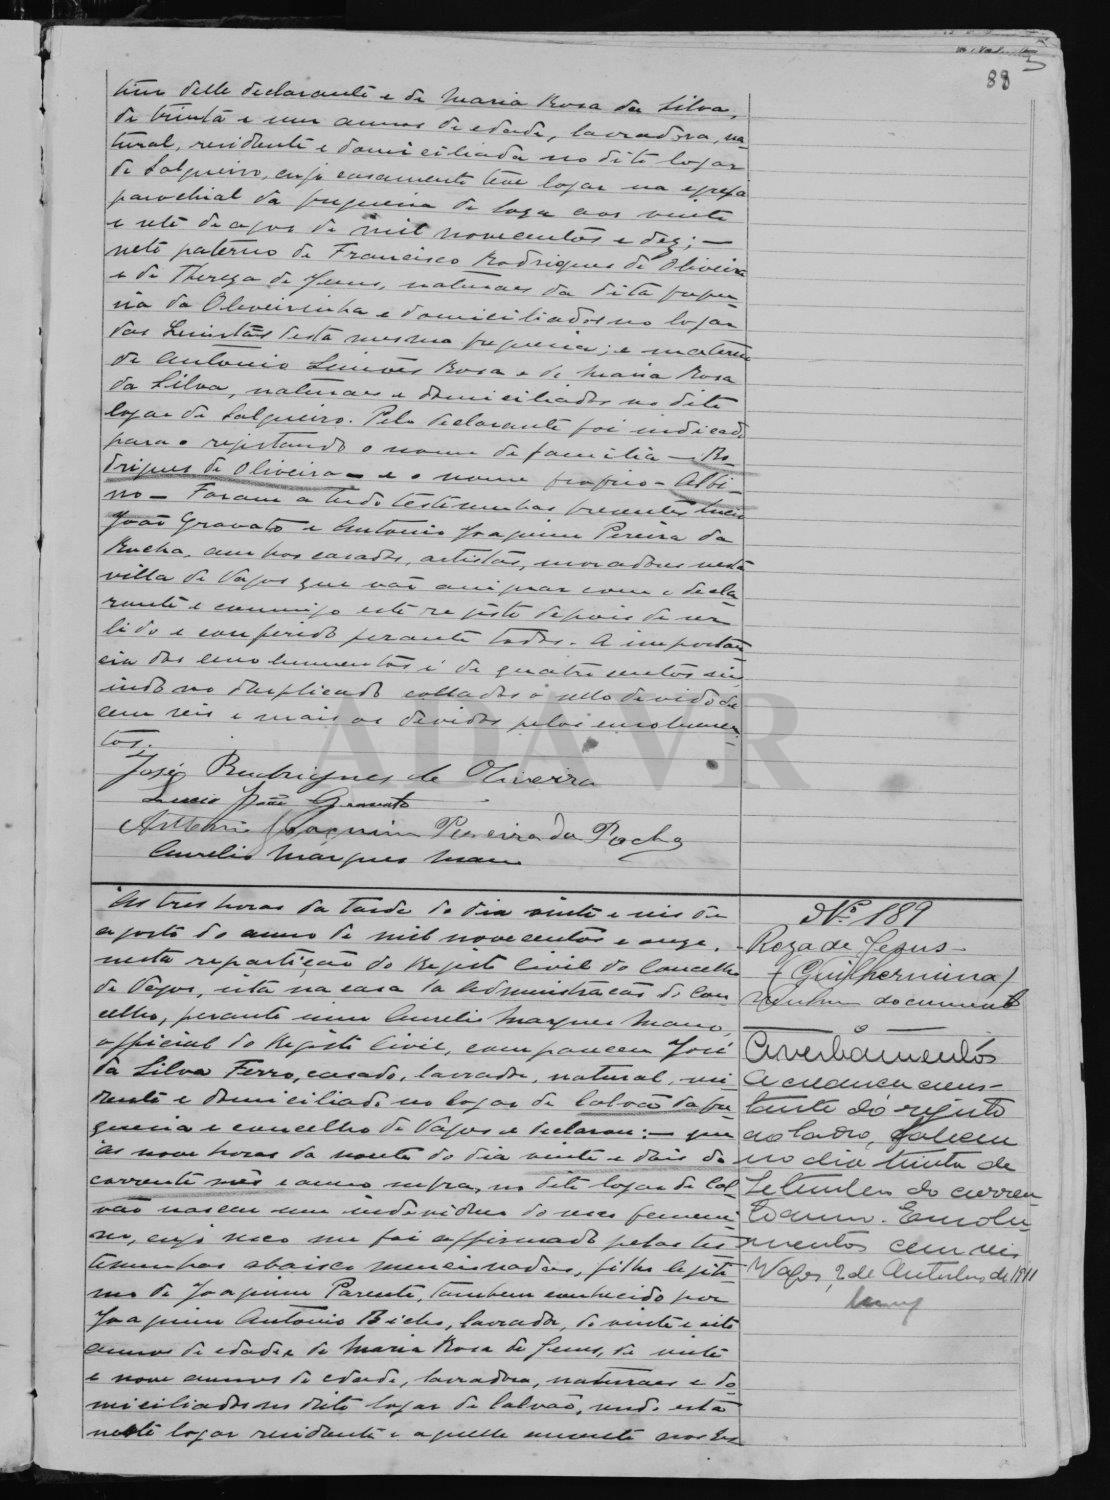 88
timo delle declarante e de Maria Rosa da Silva,
de trinta e um annos de edade, lavradora, na-
tural, residente e domiciliada no dito logar
de Salgueiro, cujo casamento teve logar na egreja
parochial da freguezia de Soza aos vinte
e sete de agos de mil novecentos e dez; —
neto paterno de Francisco Rodrigues de Oliveira
e de Thereza de Jesus, naturaes da dita fregue-
zia da Oliveirinha e domiciliados no logar
das Quintãs desta mesma freguezia; e materno
de Antonio Simões Rosa e de Maria Rosa
da Silva, naturaes e domiciliados no dito
logar de Salgueiro. Pelo declarante foi indicado
para o registando o nome de familia — Ro-
drigues de Oliveira — e o nome proprio — Albi-
no — Foram a tudo testemunhas presentes Lucio
João Gravato e Antonio Joaquim Pereira da
Rocha, ambos casados, artistas, moradores nesta
villa de Vagos que vão assignar com o decla-
rante e commigo este registo depois de ser
lido e conferido perante todos. A importan-
cia dos emolumentos é de quatrocentos
indo no duplicado collados o sello devido de
cem reis e mais os devidos pelos emolumen-
tos.
José Rudrigues de Oliveira
Lucio João Gravato
Antonio Joaquim Pereira da Rocha
Aurelio Marques Mano
ADAVR
Às tres horas da tarde do dia vinte e seis de
agosto do anno de mil novecentos e onze,
nesta repartição do Registo Civil do Concelho
de Vagos, sita na casa da Administração do Con-
celho, perante mim Aurelio Marques Mano,
official do Registo Civil, compareceu José
da Silva Ferro, casado, lavrador, natural, resi-
dente e domiciliado no logar de Calvão da fre-
guezia e concelho de Vagos e declarou: — que
às nove horas da noute do dia vinte e dois do
corrente mês e anno supra, no dito logar de Cal-
vão nasceu um individuo do sexo femeni-
no, cujo sexo me foi affirmado pelas tes-
temunhas abaixo mencionadas, filho legiti-
mo de Joaquim Parente, tambem conhecido por
Joaquim Antonio Bicho, lavrador, de vinte e sete
annos de edade e de Maria Rosa de Jesus, de vinte
e nove annos de edade, lavradora, naturaes e do-
miciliados no dito logar de Calvão, sendo esta
neste logar residente e aquelle ausente nos
Nº 189
Roza de Jesus
(Guilhermina)
Nenhum documento
Averbamentos
A creança cons-
tante do registo
ao lado, faleceu
no dia trinta de
Setembro do corren-
te anno. Emolu-
mentos cem reis
Vagos, 2 de Outubro de 1911